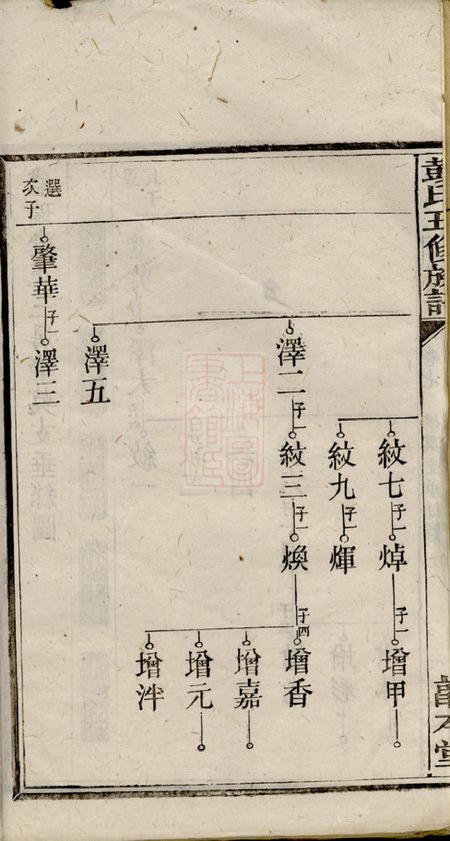 彭氏五修族譜
紋七
子一
焯
子一
增甲
紋九
子一
煇
澤二
子一
紋三
子一
煥
子四
增香
增嘉
增元
增泮
澤五
選
次子
肇華
子一
澤三